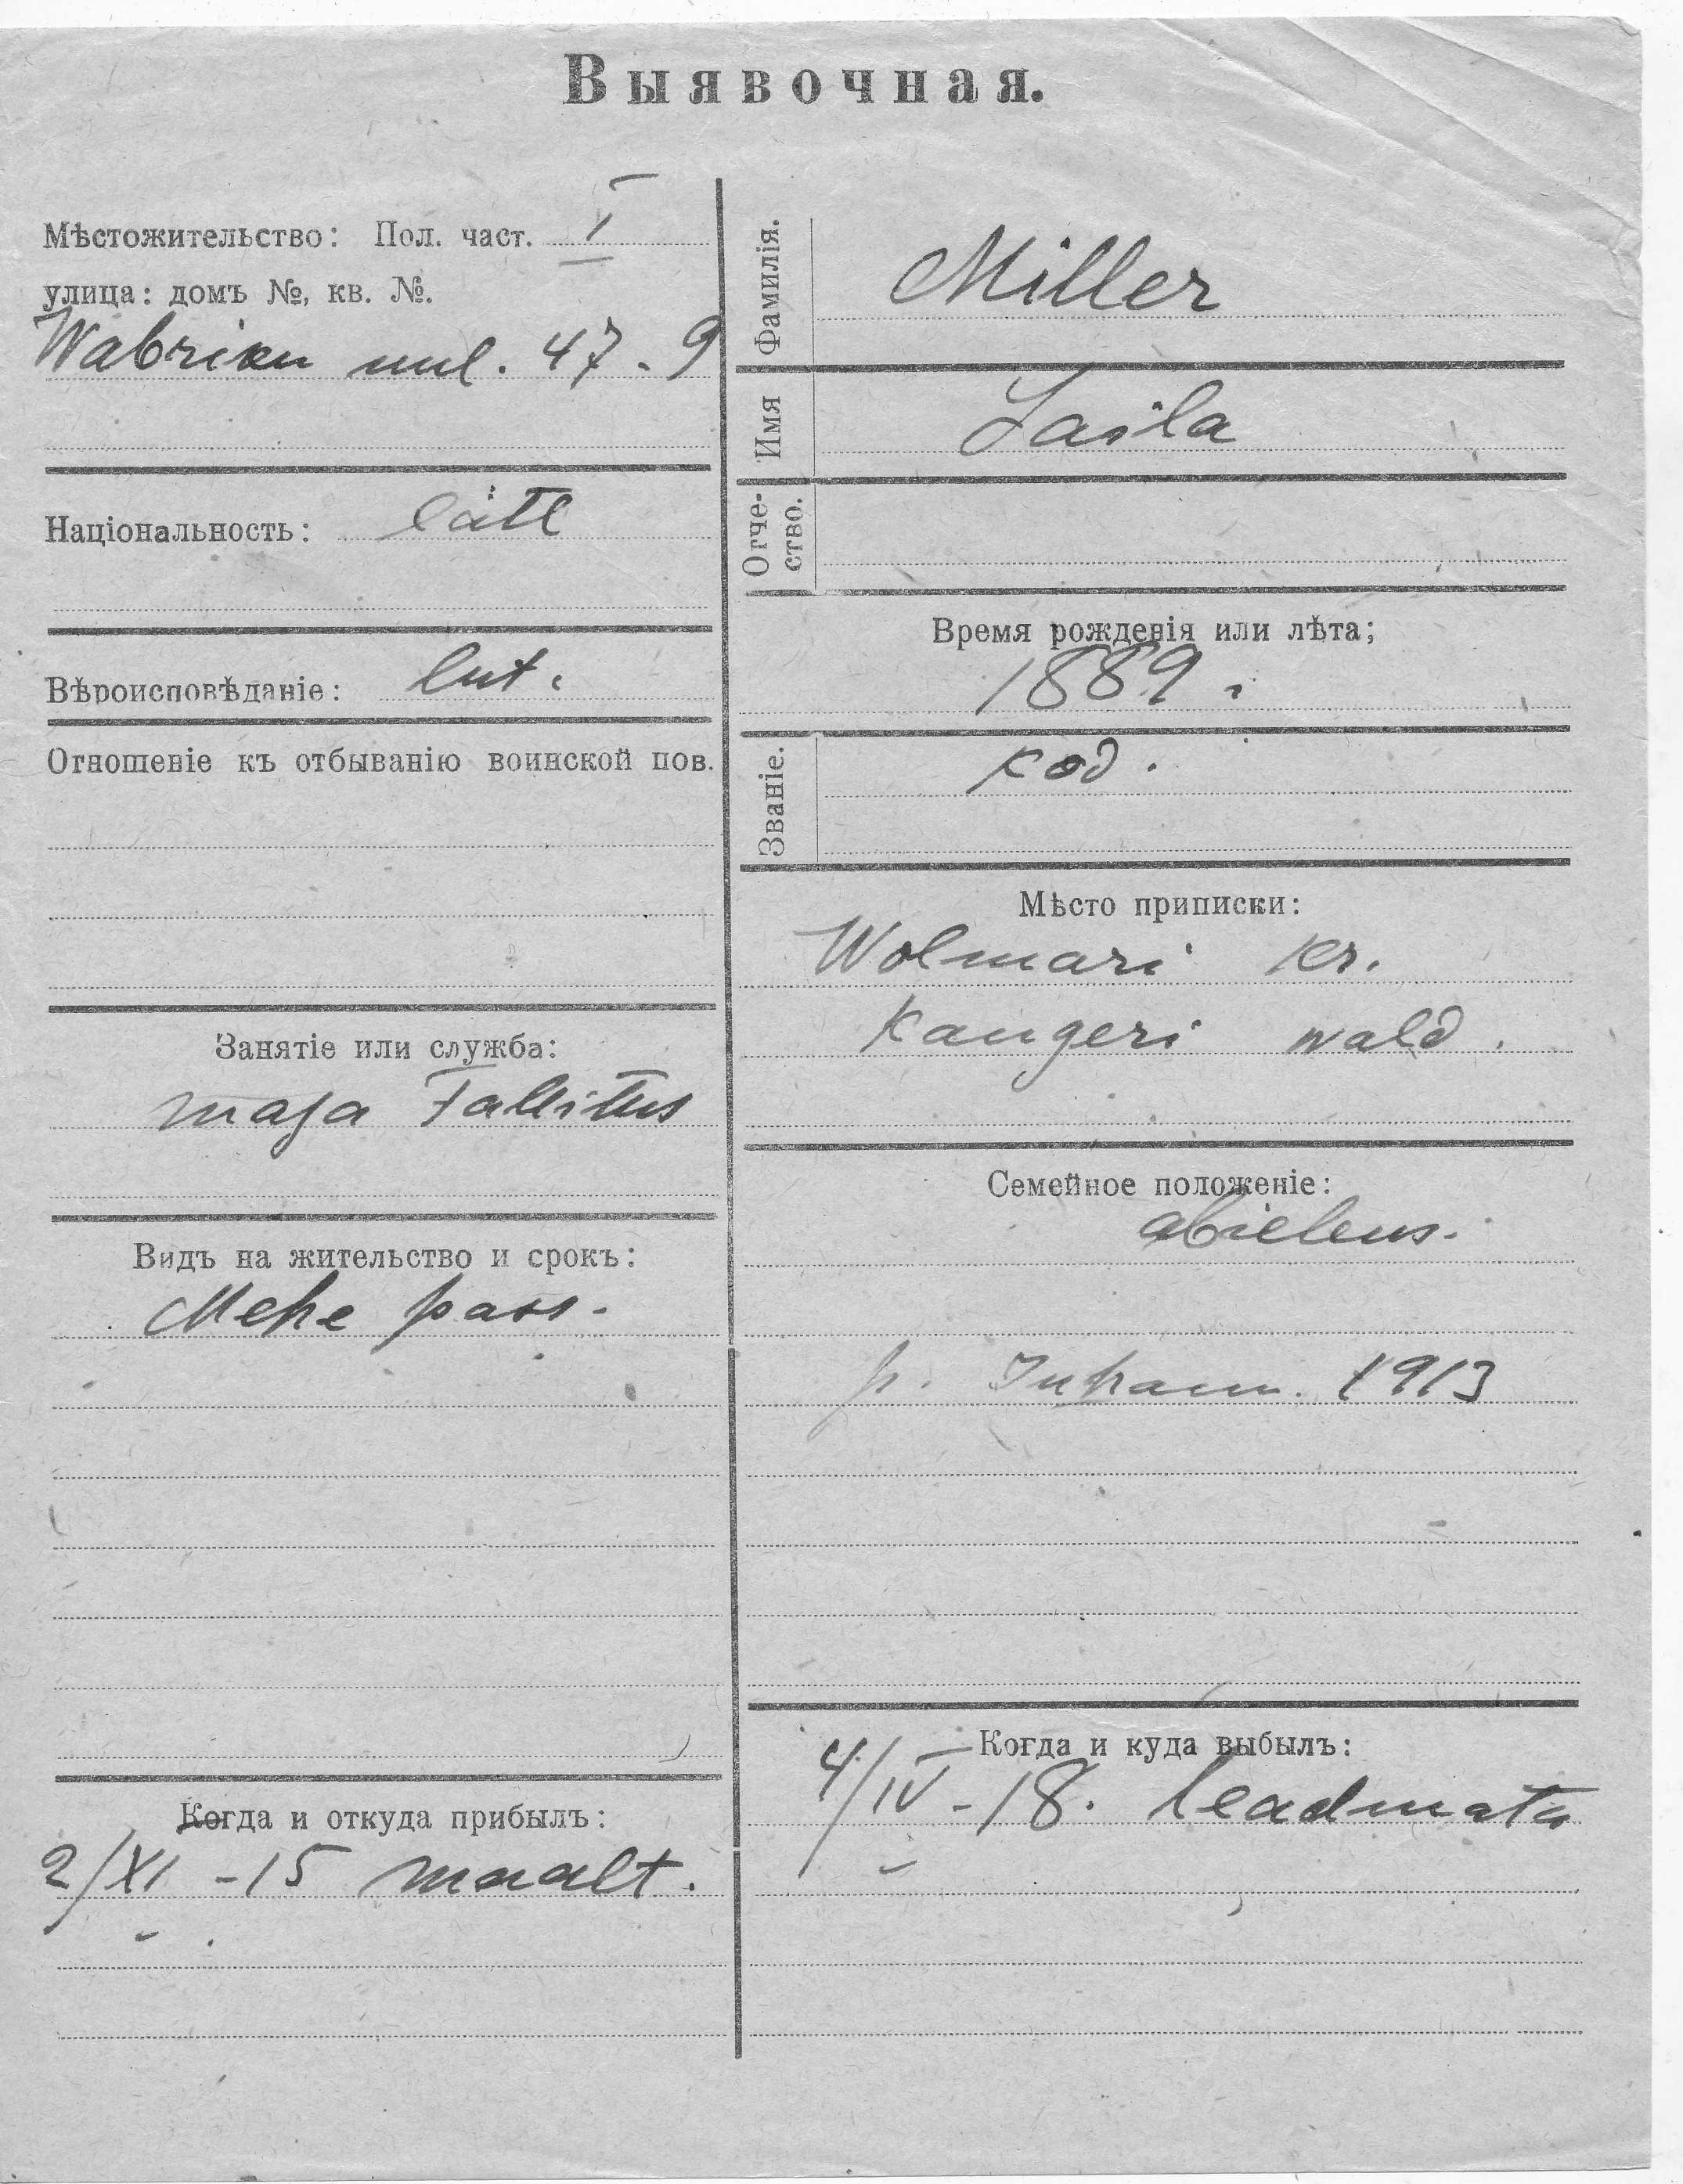 Выявочная.
Мѣстожительство: Пол. част. I
улица: домъ №, кв. №.
Wabriku uul. 47-9
Національность: lätl
Вѣроисповѣданіе: lut.
Отношеніе къ отбыванію воинской пов.
Занятіе или служба:
maja Tallitus
Видъ на жительство и срокъ:
Mehe pass.
Когда и откуда прибылъ:
2/XI -15 maalt.
Фамилія. Miller
Имя Laila
Отче-
ство.
Время рожденія или лѣта;
1889.
Званіе. Kod.
Мѣсто приписки:
Wolmari kr.
Kangeri wald.
Семейное положеніе:
abielus.
p. Juhan. 1913
Когда и куда выбылъ:
4/IV-18. teadmata